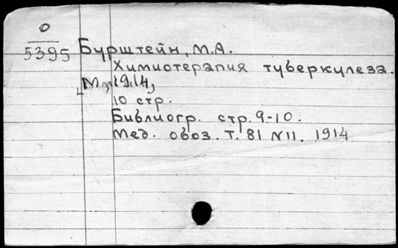 О
5395 Бурштейн, М.А.
Химиотерапия туберкулеза.
[М., 1914,
10 стр.
Библиогр. стр. 9-10.
Мед. овоз. Т. 81 №11. 1914